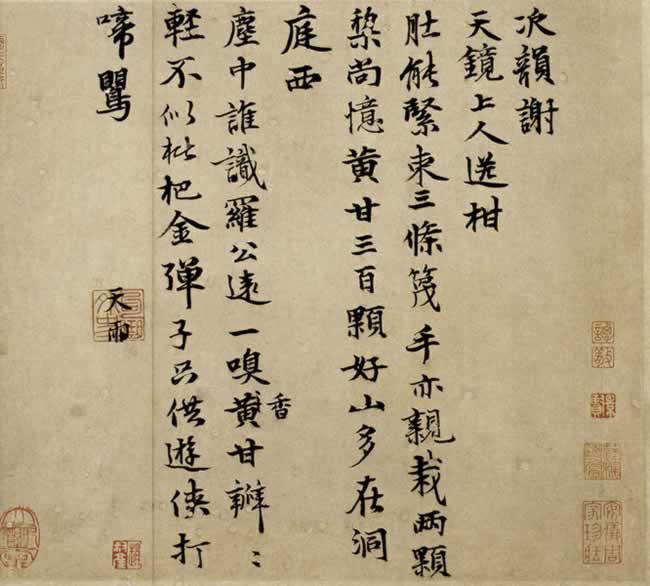 次韻謝
天鏡上人送柑
肚能緊束三條篾手亦親栽兩顆
棃尚憶黃甘三百顆好山多在洞
庭西
塵中誰識羅公遠一嗅黃甘瓣〻
香
輕不似枇杷金彈子只供遊俠打
啼鸎
天雨
安儀周家珍藏